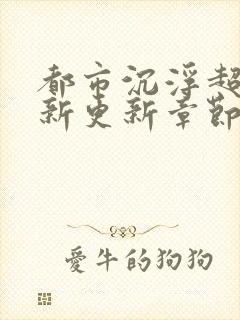 都市沉浮超
新更新章節
愛牛的狗狗